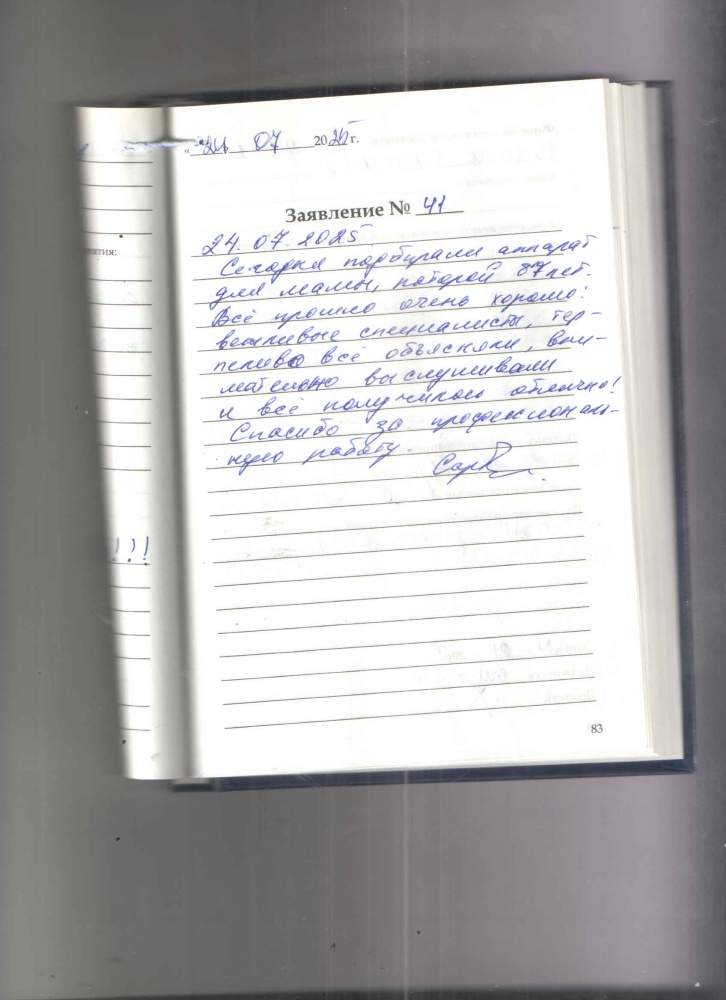 «24» 07 2025 г.
Заявление № 41
24.07.2025
Сегодня подбирали аппарат
для мамы, которой 87 лет.
Всё прошло очень хорошо!
вежливые специалисты, тер-
пеливо всё объясняли, вни-
мательно выслушивали
и всё получилось отлично!
Спасибо за профессиональ-
ную работу.
83
ятия:
!!!